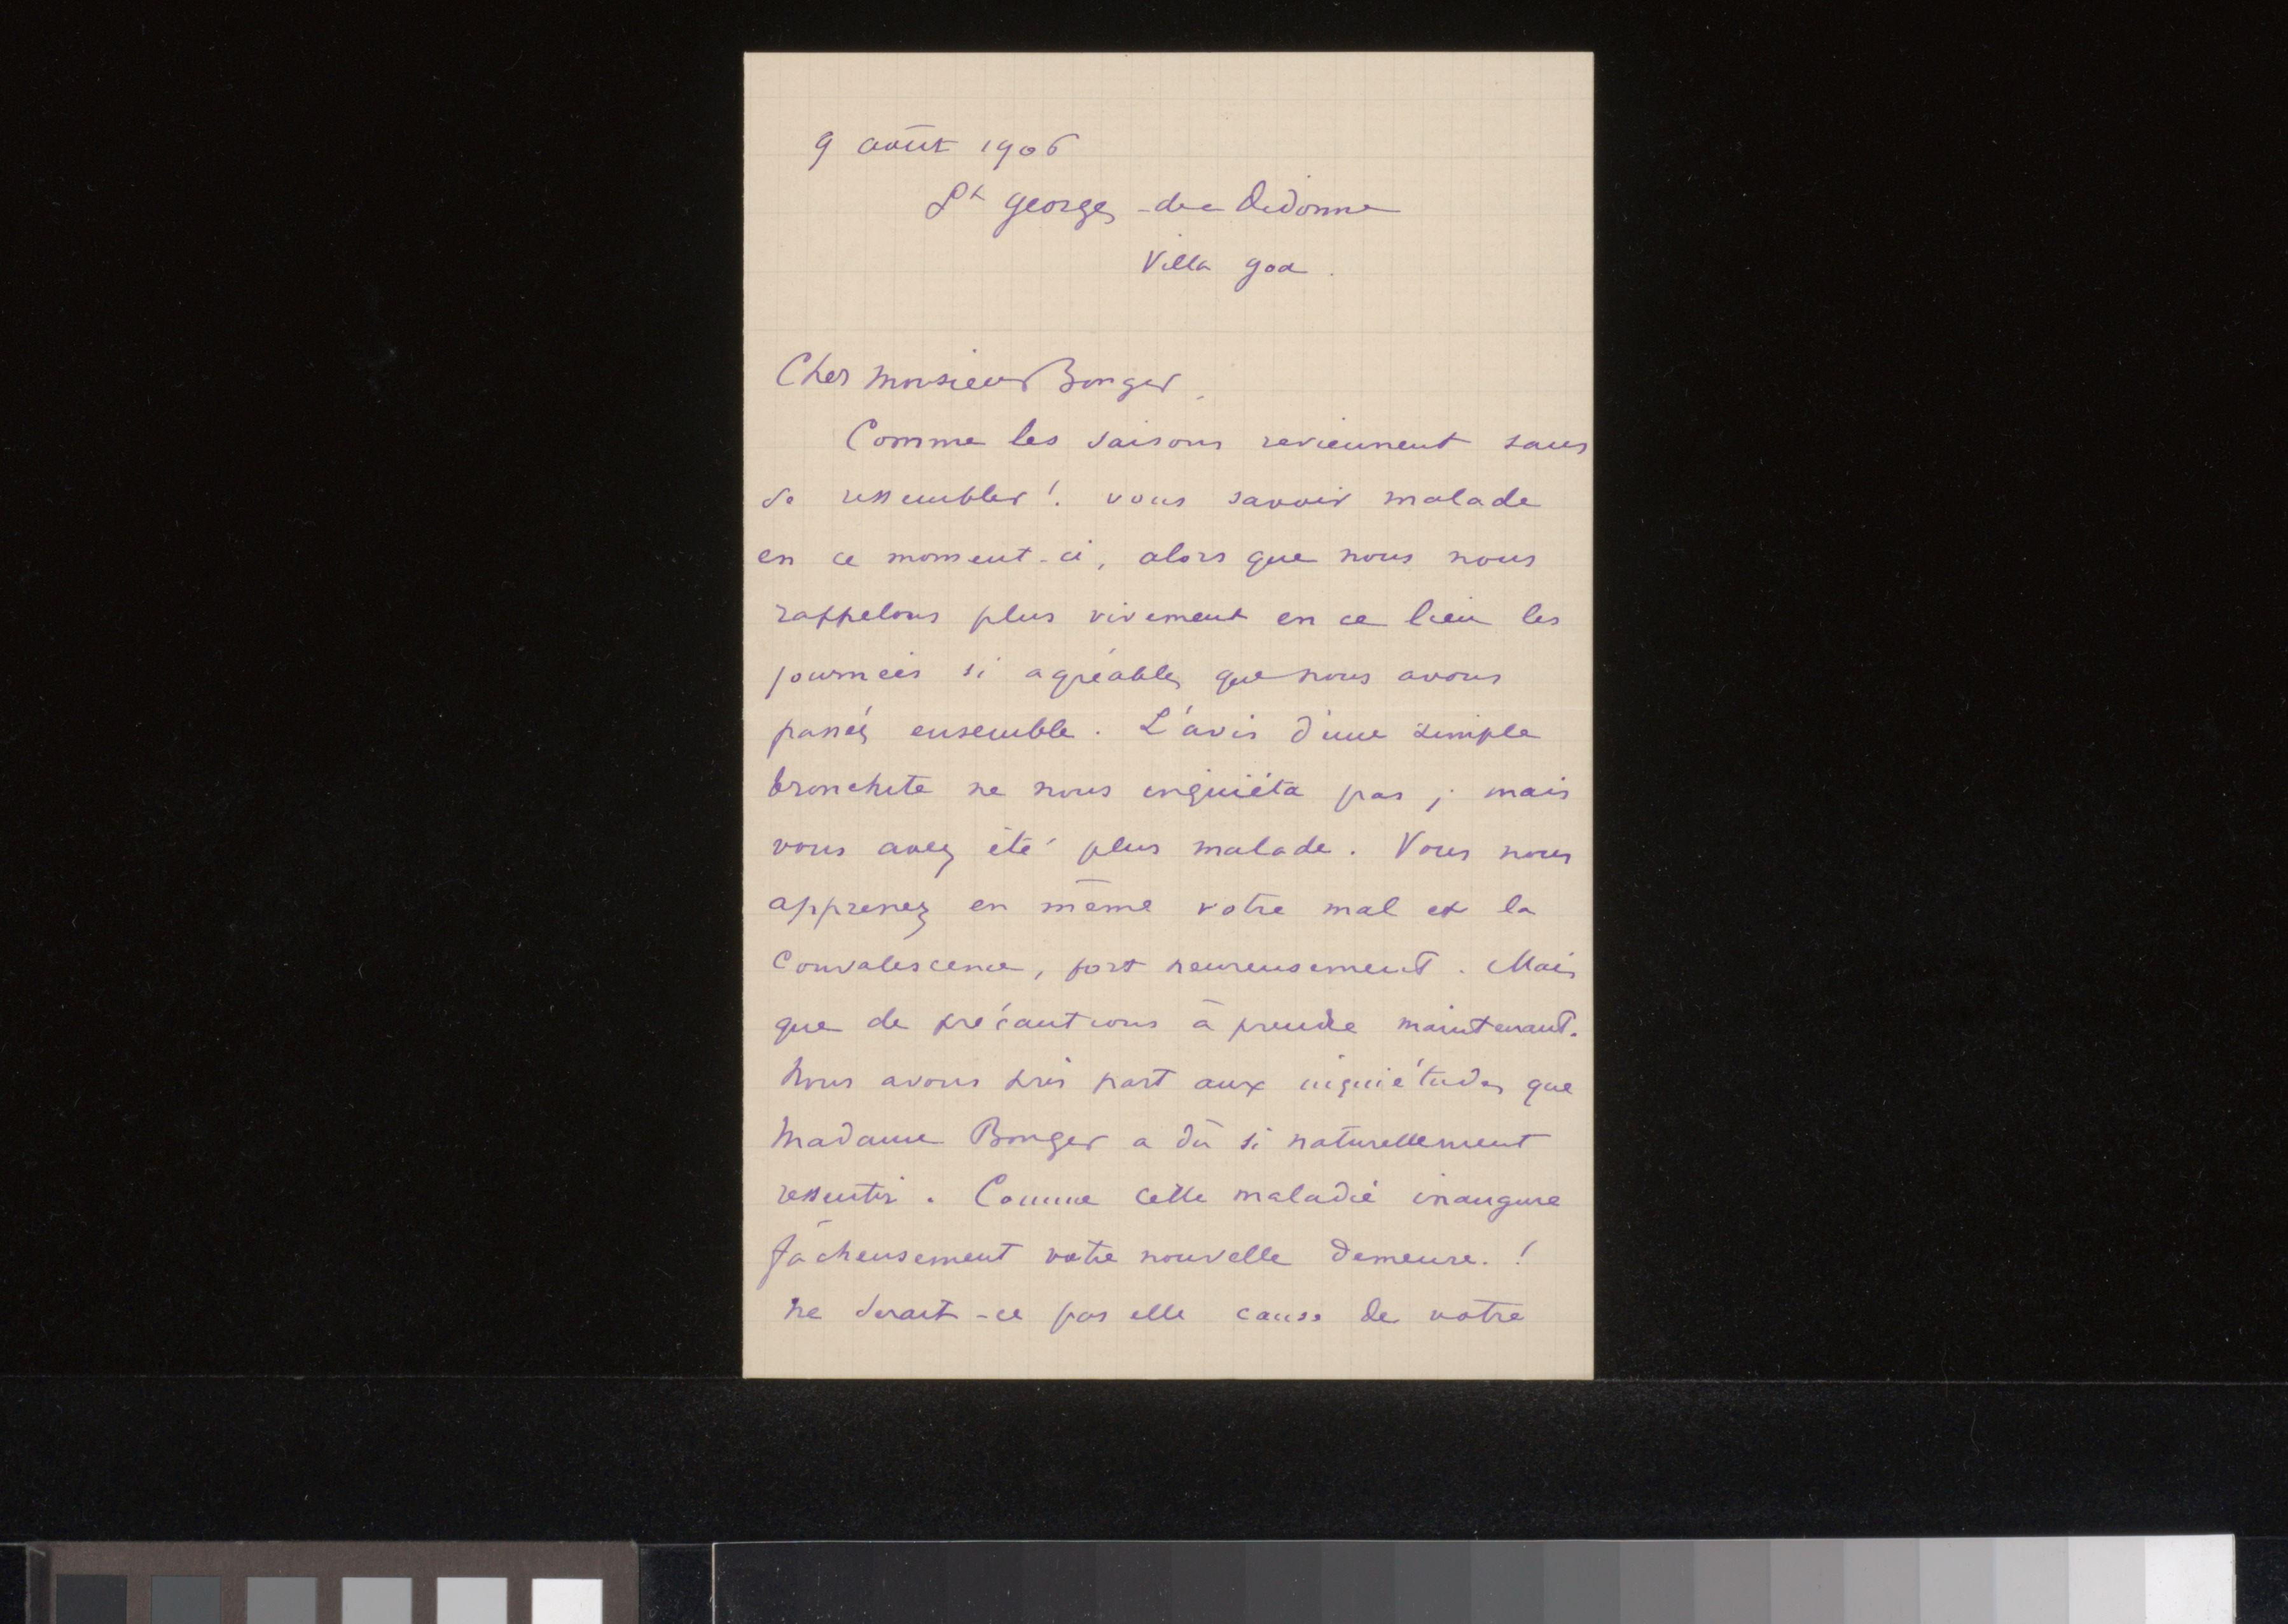 9 août 1906
St Georges-de-Didonne
Villa Goa.
Cher Monsieur Bonger,
Comme les saisons reviennent sans
se ressembler! vous savoir malade
en ce moment-ci, alors que nous nous
rappelons plus vivement en ce lieu les
journées si agréables que nous avons
passées ensemble. L'avis d'une simple
bronchite ne nous inquiéta pas; mais
vous avez été plus malade. Vous nous
apprenez en même votre mal et la
convalescence, fort heureusement. Mais
que de précautions à prendre maintenant.
Nous avons pris part aux inquiétudes que
Madame Bonger a dû si naturellement
ressentir. Comme cette maladie inaugure
fâcheusement votre nouvelle demeure.!
ne serait-ce pas elle cause de votre